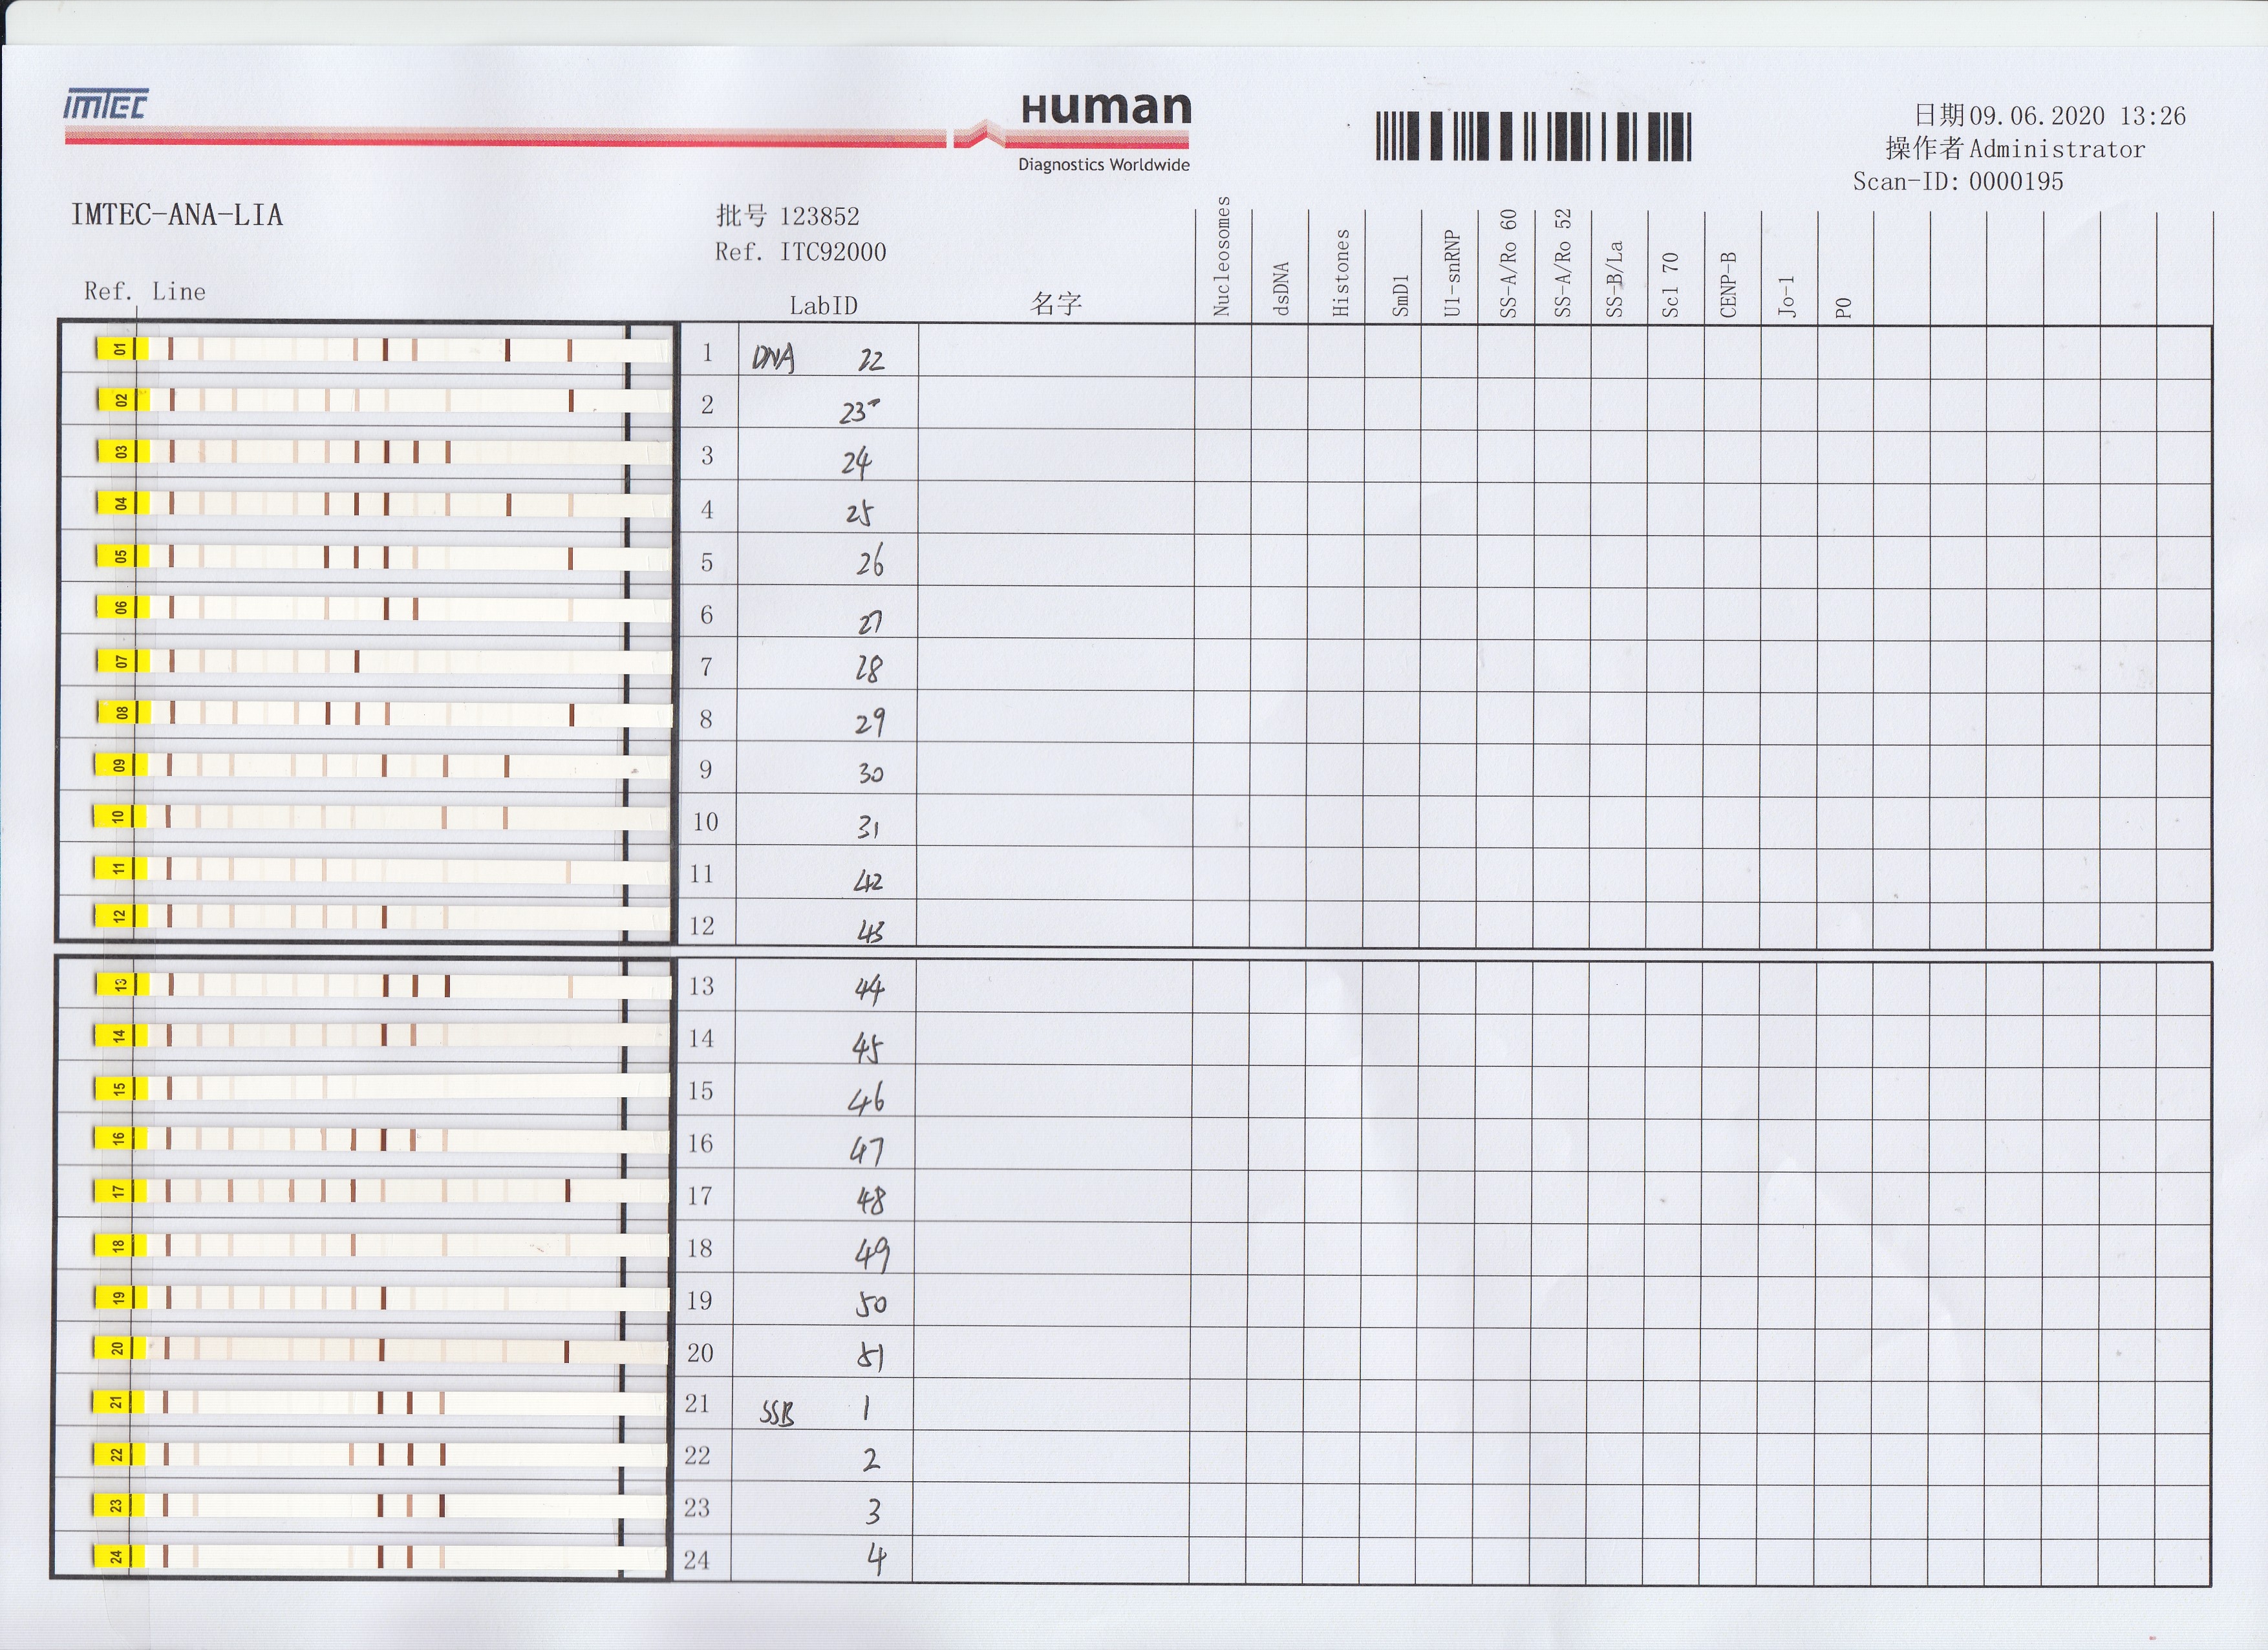 IMTEC
Human
Diagnostics Worldwide
日期 09.06.2020 13:26
操作者 Administrator
Scan-ID: 0000195
IMTEC-ANA-LIA
批号 123852
Ref. ITC92000
Ref. Line
LabID
名字
Nucleosomes
dsDNA
Histones
SmD1
U1-snRNP
SS-A/Ro 60
SS-A/Ro 52
SS-B/La
Scl 70
CENP-B
Jo-1
PO
01 1 DNA 22
02 2 23
03 3 24
04 4 25
05 5 26
06 6 27
07 7 28
08 8 29
09 9 30
10 10 31
11 11 42
12 12 43
13 13 44
14 14 45
15 15 46
16 16 47
17 17 48
18 18 49
19 19 50
20 20 51
21 21 SSB 1
22 22 2
23 23 3
24 24 4